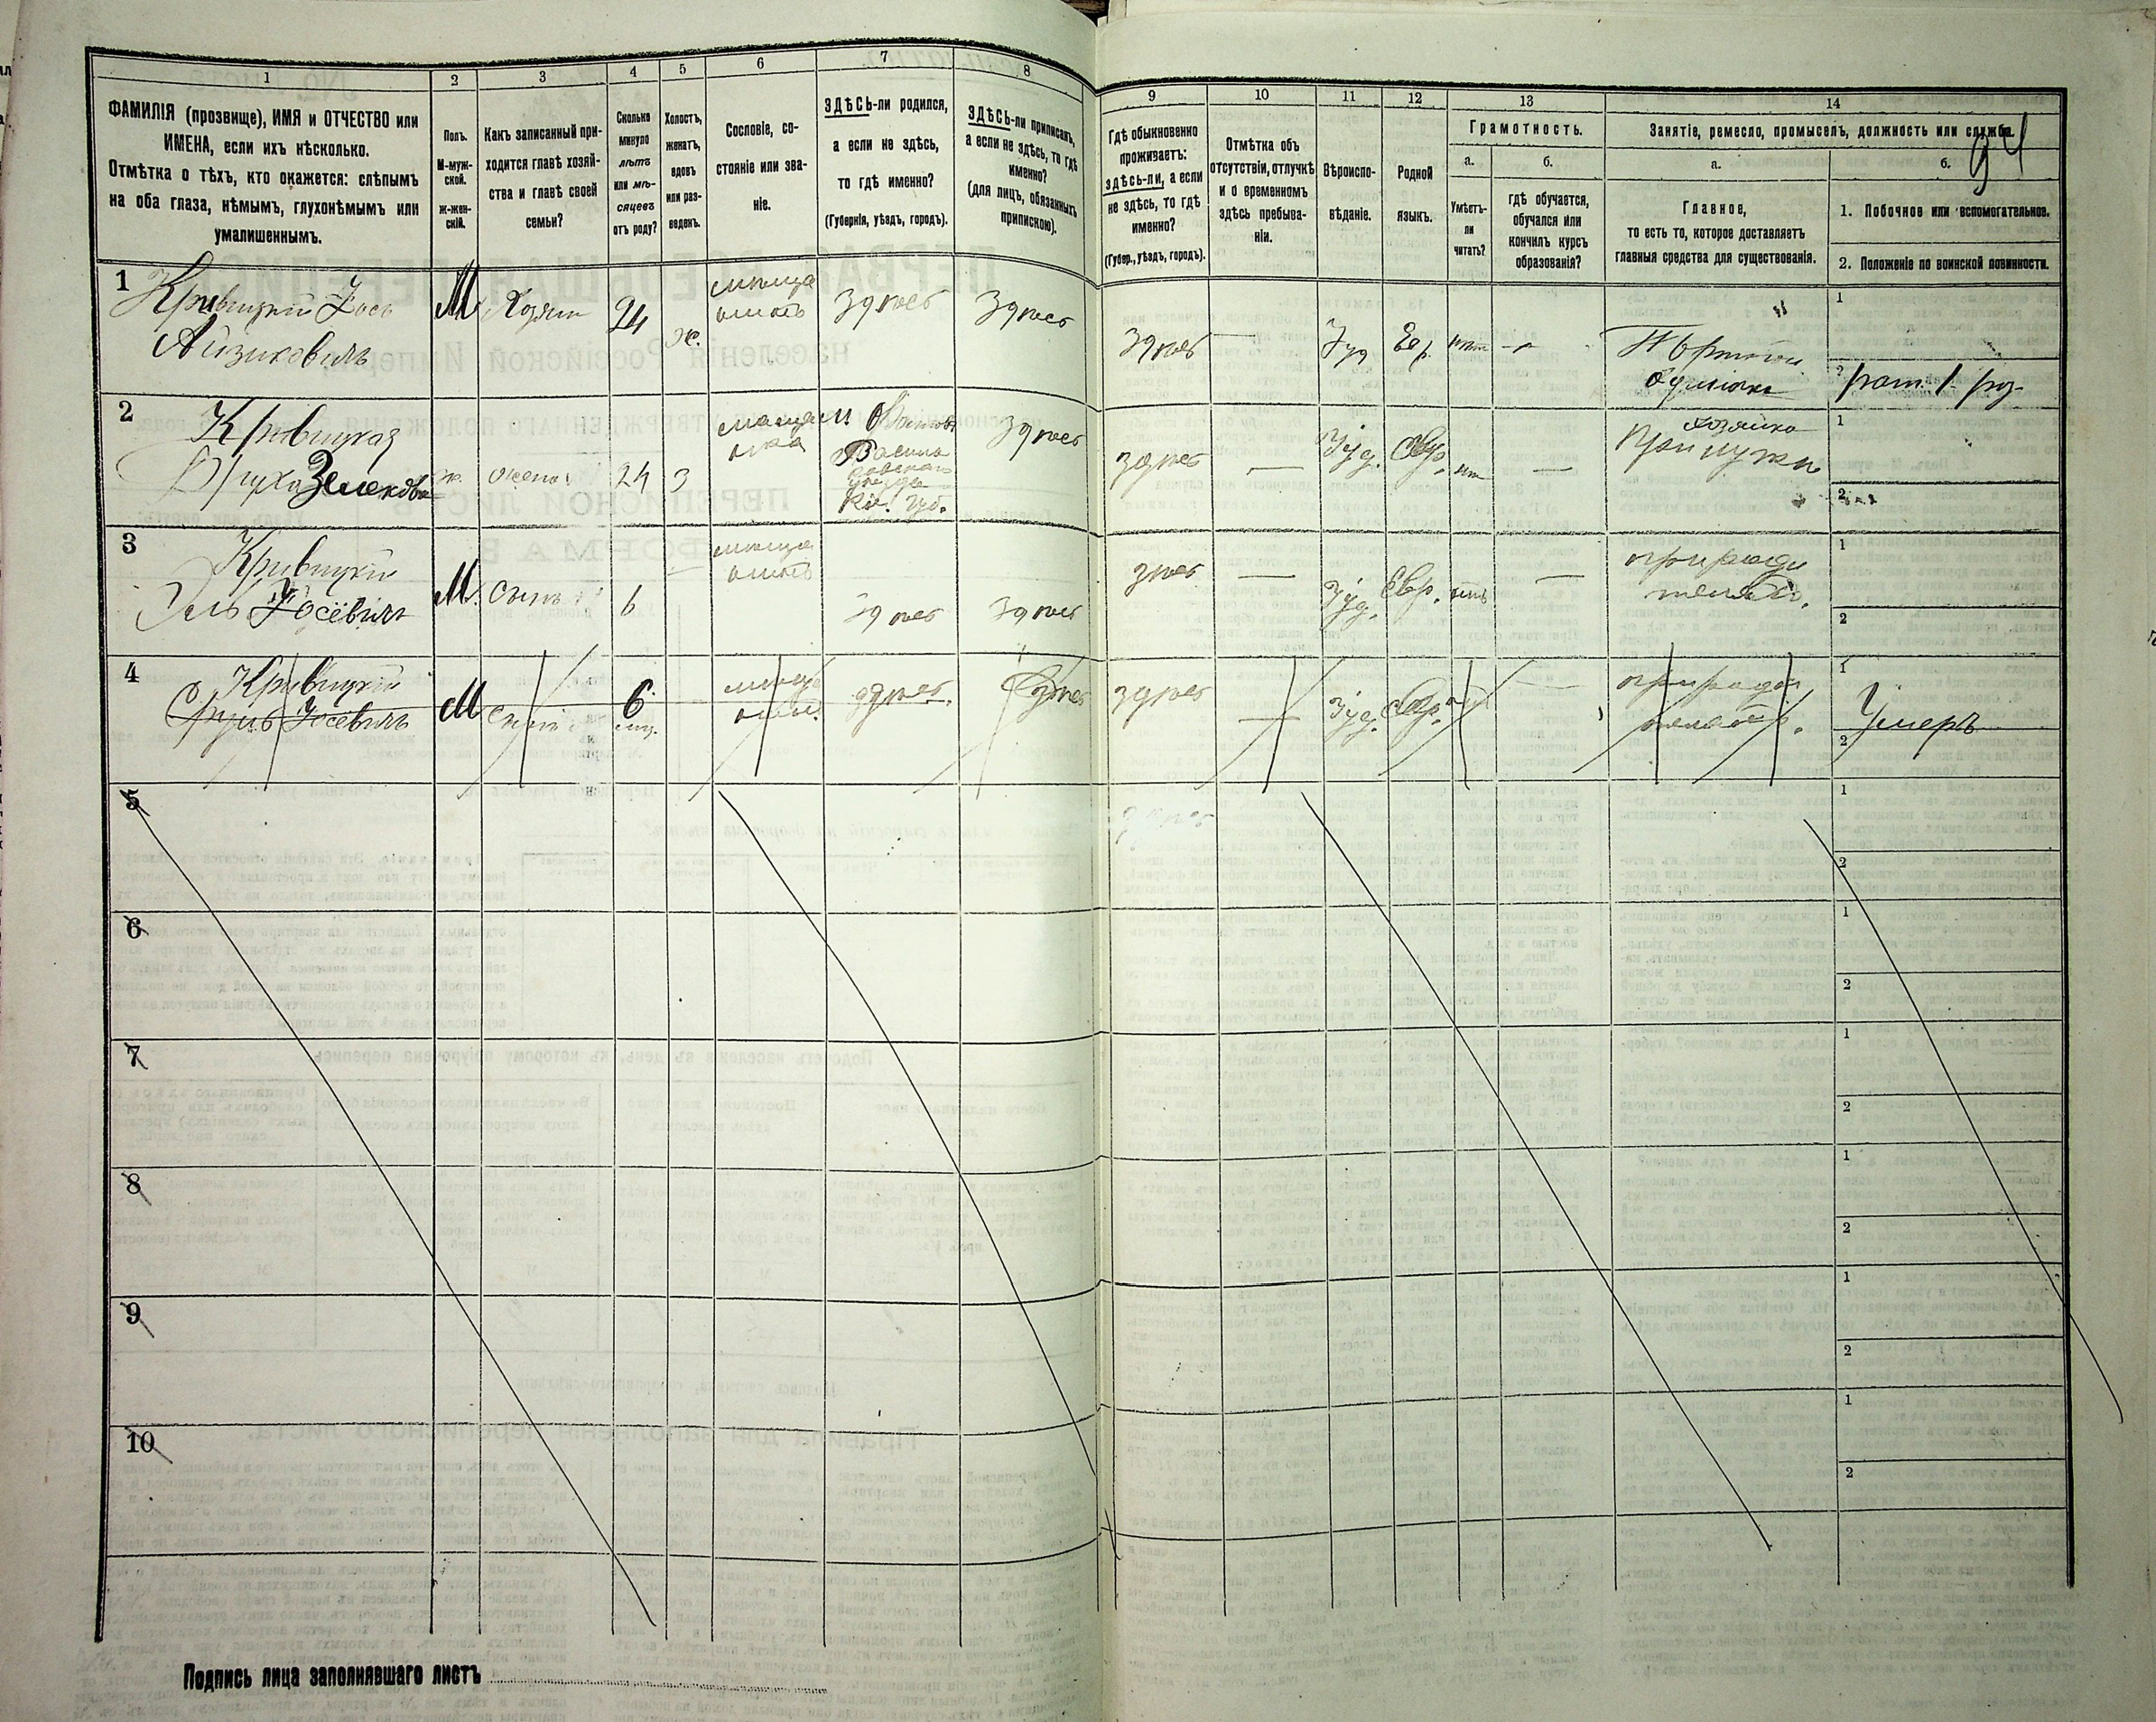 1
ФАМИЛІЯ (прозвище), ИМЯ и ОТЧЕСТВО или
ИМЕНА, если ихъ нѣсколько.
Отмѣтка о тѣхъ, кто окажется: слѣпымъ
на оба глаза, нѣмымъ, глухонѣмымъ или
умалишеннымъ.
2
Полъ.
М-муж-
ской.
Ж-жен-
скій.
3
Какъ записанный при-
ходится главѣ хозяй-
ства и главѣ своей
семьи?
4
Сколько
минуло
лѣтъ
или мѣ-
сяцевъ
отъ роду?
5
Холостъ,
женатъ,
вдовъ
или раз-
веденъ.
6
Сословіе, со-
стояніе или зва-
ніе.
7
ЗДѢСЬ-ли родился,
а если не здѣсь,
то гдѣ именно?
(Губернія, уѣздъ, городъ).
8
ЗДѢСЬ-ли приписанъ,
а если не здѣсь, то гдѣ
именно?
(для лицъ, обязанныхъ
припискою).
9
Гдѣ обыкновенно
проживаетъ:
здѣсь-ли, а если
не здѣсь, то гдѣ
именно?
(Губер., уѣздъ, городъ).
10
Отмѣтка объ
отсутствіи, отлучкѣ
и о временномъ
здѣсь пребыва-
ніи.
11
Вѣроиспо-
вѣданіе.
12
Родной
языкъ.
13
Грамотность.
а.
Умѣетъ-
ли
читать?
б.
гдѣ обучается,
обучался или
кончилъ курсъ
образованія?
14
Занятіе, ремесло, промыселъ, должность или служба.
94
а.
Главное,
то есть то, которое доставляетъ
главныя средства для существованія.
б.
1. Побочное или вспомогательное.
2. Положеніе по воинской повинности.
1
Кривицкий Іось
Айзиковичъ
М
Хозяин
24
ж.
меща
нинъ
Здѣсь
Здѣсь
Здѣсь
—
Іуд
Евр.
нѣт
—
1
2
рат. 1. раз.
2
Кривицкая
ж.
жена
24
З
меща
нка
Васильковскаго
уѣзда
Кіе. губ.
Здѣсь
здѣсь
—
Іуд.
Евр.
нѣт
—
хозяйка
При мужѣ
1
2
3
Кривицкій
Эль Іосевичъ
М.
Сынъ
6
меща
нинъ
Здѣсь
Здѣсь
здѣсь
—
Іуд.
Евр.
нѣтъ
—
при роди
теляхъ.
1
2
4
Кривицкій
Сруль Іосевичъ
М
Сынъ
6
мѣс.
меща
нинъ
здѣсь
Здѣсь
здѣсь
—
Іуд.
Евр.
—
при роди
теляхъ.
1
Умеръ
2
5
1
2
6
1
2
7
1
2
8
1
2
9
1
2
10
1
2
Подпись лица заполнявшаго листъ